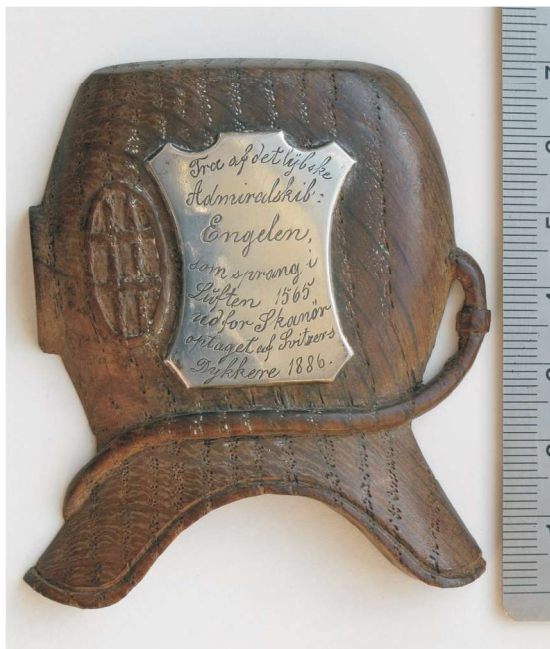 Træ af det lÿbske
Admiralskib:
Engelen,
som sprang i
Luften 1565
ud for Skanör
optaget af Svitzers
Dykkere 1886.
7
5